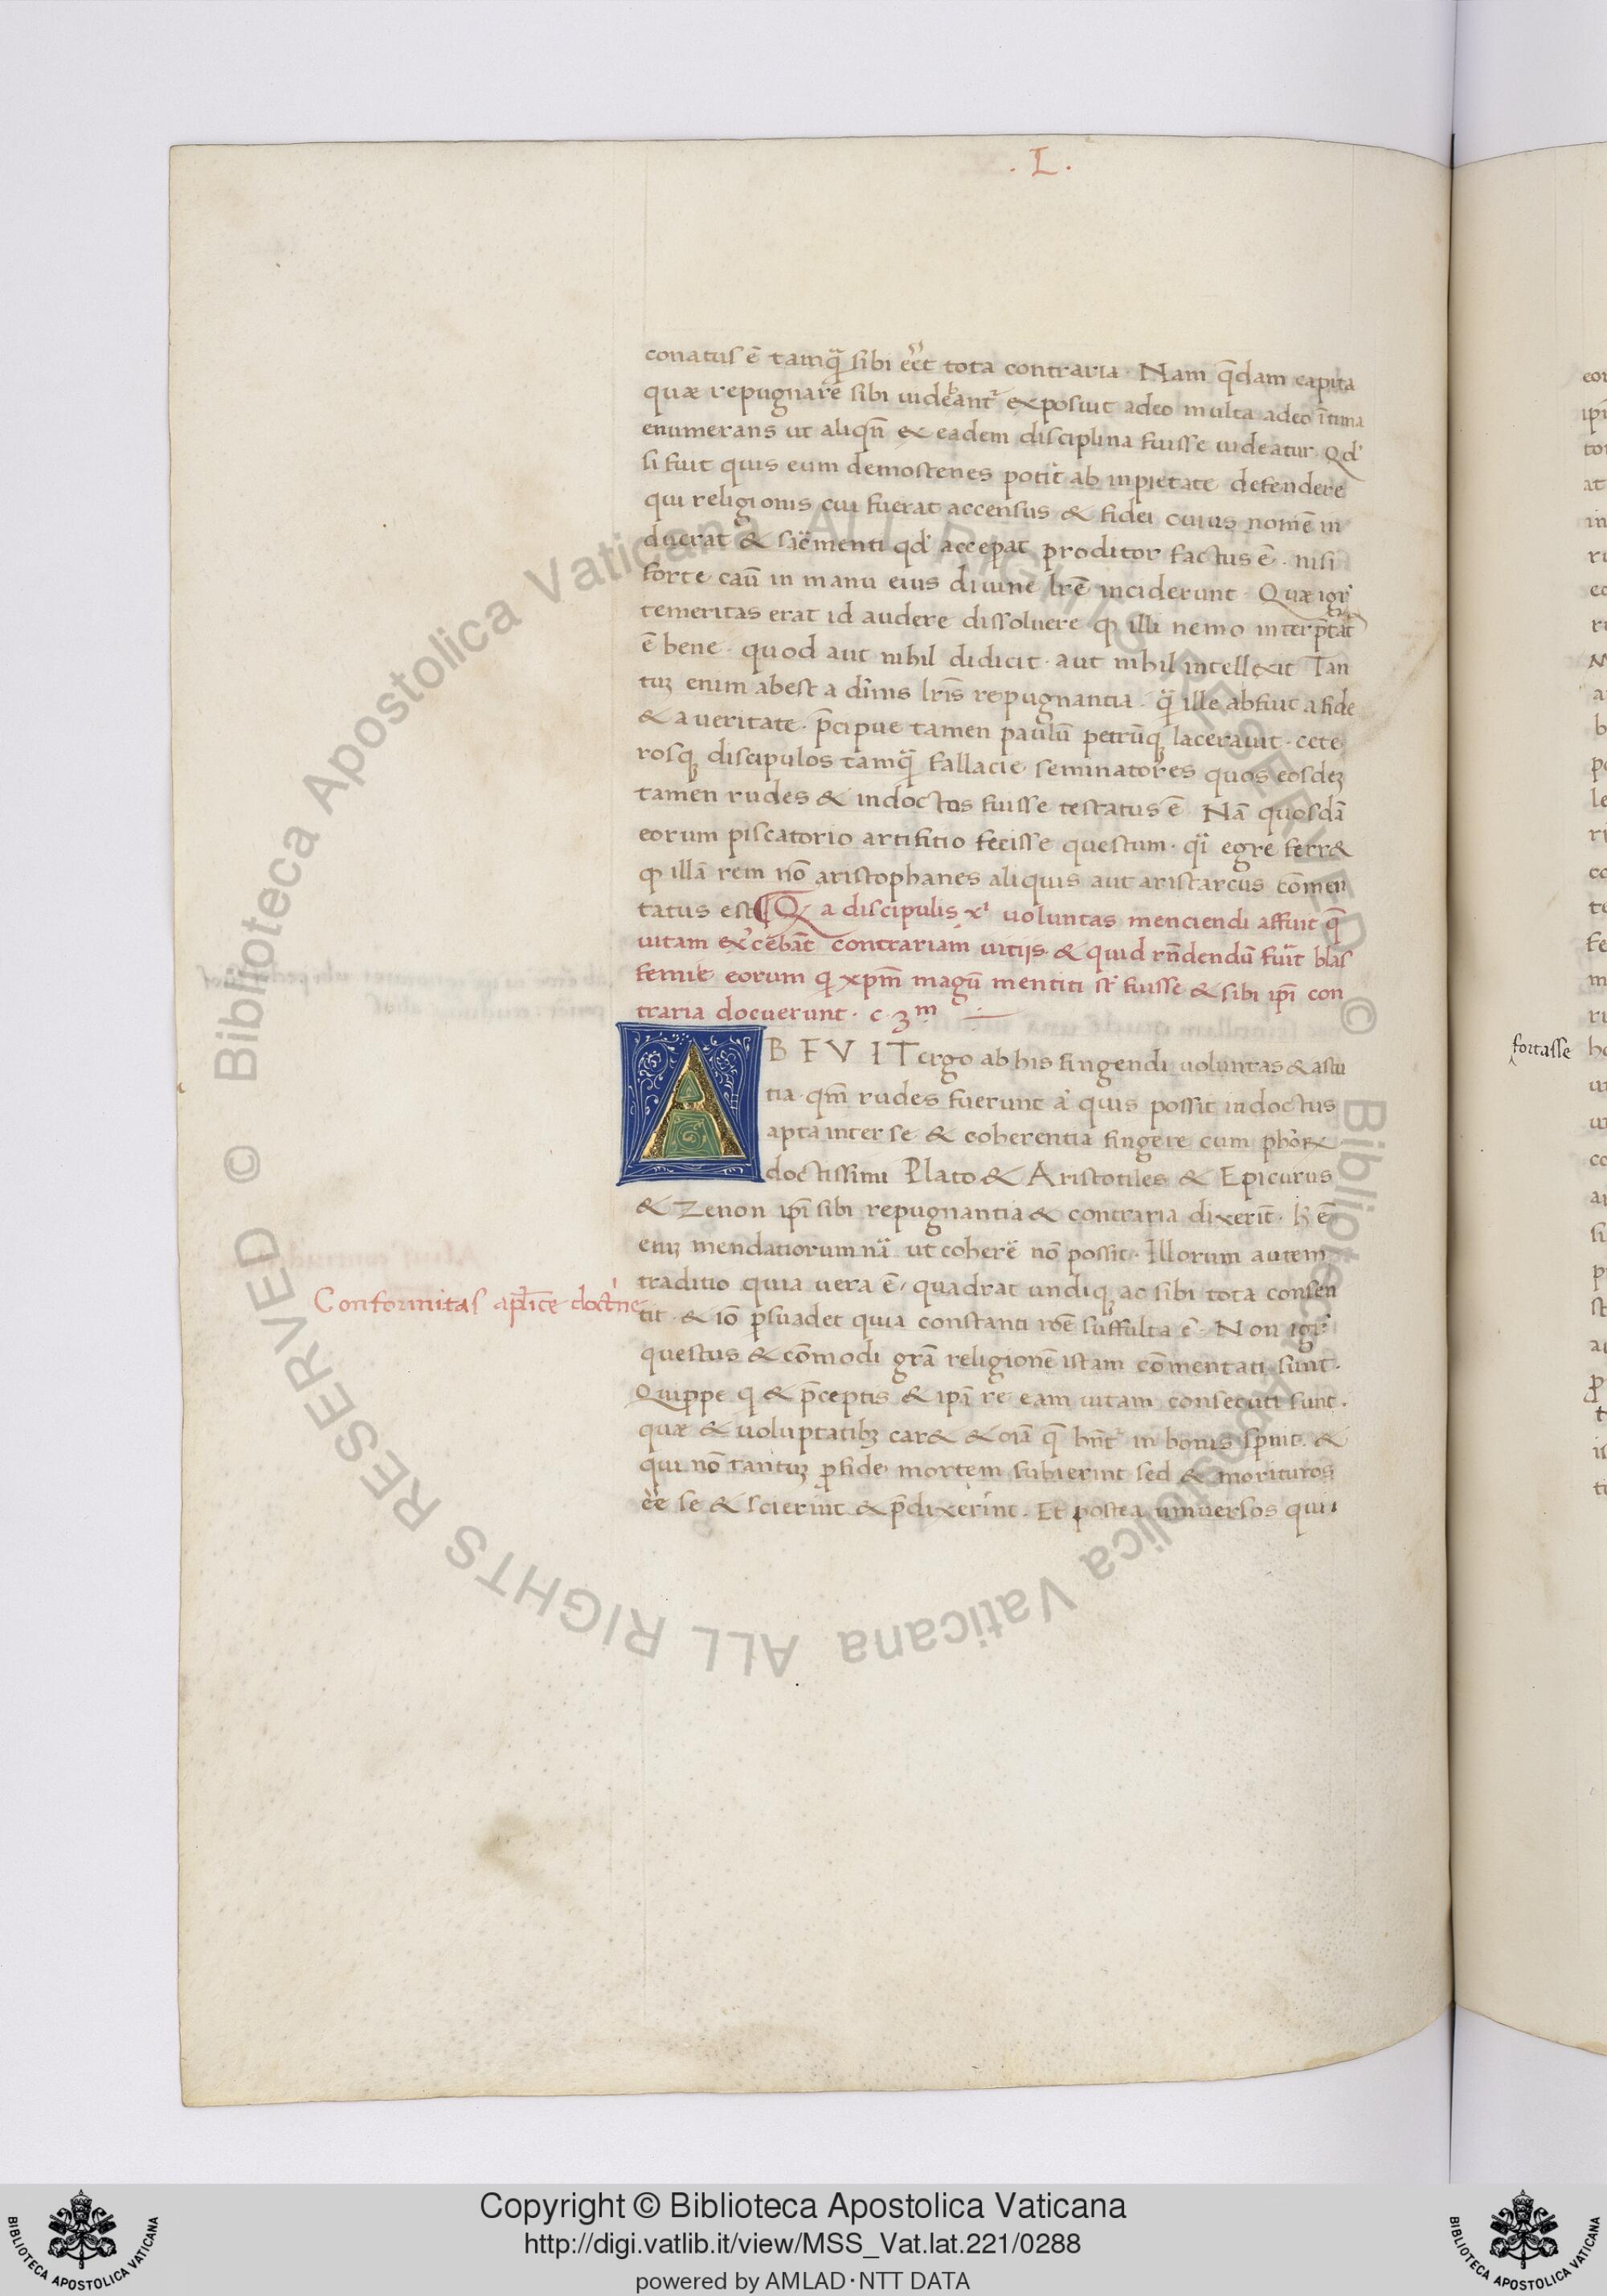 . L .
conatus ē tamq̄ sibi eēt tota contraria. Nam q̄dam capita
quæ repugnare sibi videbant᷑ exposuit adeo multa adeo ītima
enumerans ut aliqn̄ ex eadem disciplina fuisse videatur. Qd'
si fuit quis eum demostenes potit ab inpietate defendere
qui religionis cui fuerat accensus & fidei cuius nomē in
duerat & sac̄menti qd' accepat proditor factus ē. nisi
forte casu in manu eius diuine lr̄e inciderunt. Quæ igr̄
temeritas erat id audere dissoluere qp illi nemo interp̄tat᷑
ē bene. quod aut nihil didicit. aut nihil intellexit Tan
tuꝫ enim abest a diuis lr̄is repugnantia. q̄ ille abfuit a fide
& a ueritate. p̄cipue tamen paulū petrūqꝫ lacerauit. cete
rosqꝫ discipulos tamq̄ fallacie seminatores quos eosdeꝫ
tamen rudes & indoctos fuisse testatus ē. Nā quosdā
eorum piscatorio artifitio fecisse questum. q̄i egre ferr&
qp illā rem nō aristophanes aliquis aut aristarcus cōmen
tatus est ¶ Q a discipulis xi uoluntas menciendi affuit q̄
uitam ex'cebāt contrariam uitijs. & quid rn̄dendū fuit blas
femie eorum q xpm̄ magū mentiti st fuisse & sibi ip̄i con
traria docuerunt. c. 3m
A B F V I T ergo ab his fingendi uoluntas & astu
tia. qm̄ rudes fuerunt a' quis possit indoctus
apta inter se & coherentia fingere cum phorꝝ
doctissimi Plato & Aristotiles & Epicurus
& Zenon ip̄i sibi repugnantia & contraria dixerīt. h ē
eniꝫ mendatiorum nā ut coherē nō possit. Illorum autem
traditio quia uera ē, quadrat undiqꝫ ac sibi tota consen
Conformitas aplice doct'ne
tit. & iō p̱suadet quia constanti rōe suffulta ē. Non igr̄
questus & cōmodi grā religionē istam cōmentati sunt.
Quippe q & p̄ceptis & ip̄i re eam uitam consecuti sunt.
quæ & uoluptatibꝫ car& & oīa q̄ hn̄t᷑ in bonis spnit. &
qui nō tantuꝫ ꝓ fide mortem subierint sed & morituros
eē se & scierint & p̄dixerint. Et postea uniuersos qui
fortasse
Copyright © Biblioteca Apostolica Vaticana
http://digi.vatlib.it/view/MSS_Vat.lat.221/0288
powered by AMLAD·NTT DATA
BIBLIOTECA APOSTOLICA VATICANA
BIBLIOTECA APOSTOLICA VATICANA
© Biblioteca Apostolica Vaticana ALL RIGHTS RESERVED © Biblioteca Apostolica Vaticana ALL RIGHTS RESERVED